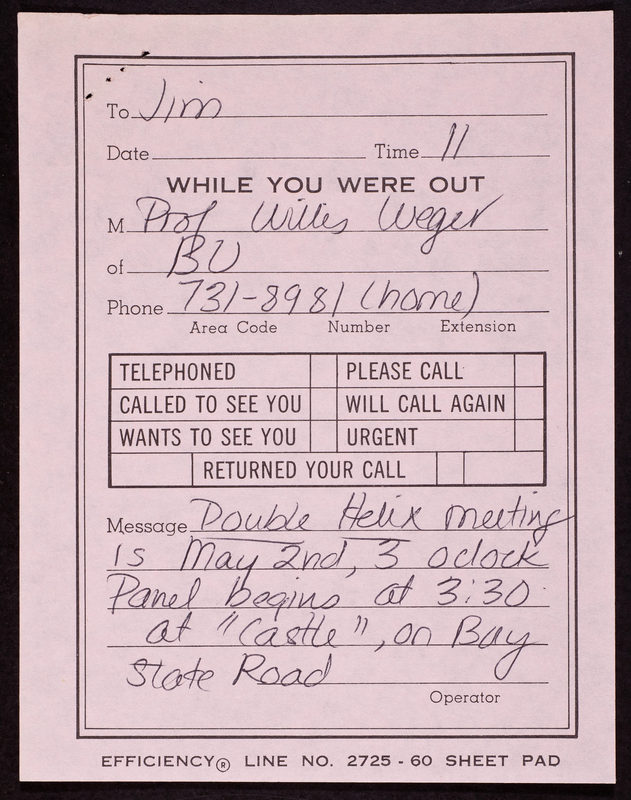 To Jim
Date Time 11
WHILE YOU WERE OUT
M Prof Willis Weger
of BU
Phone 731-8981 (home)
Area Code Number Extension
TELEPHONED PLEASE CALL
CALLED TO SEE YOU WILL CALL AGAIN
WANTS TO SEE YOU URGENT
RETURNED YOUR CALL
Message Double Helix meeting
is May 2nd, 3 oclock
Panel begins at 3:30
at "Castle", on Bay
State Road
Operator
EFFICIENCY® LINE NO. 2725 - 60 SHEET PAD